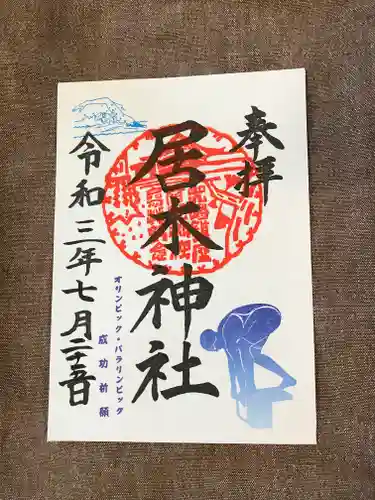 奉拝
居木神社
オリンピック・パラリンピック
成功祈願
令和三年七月二十五日